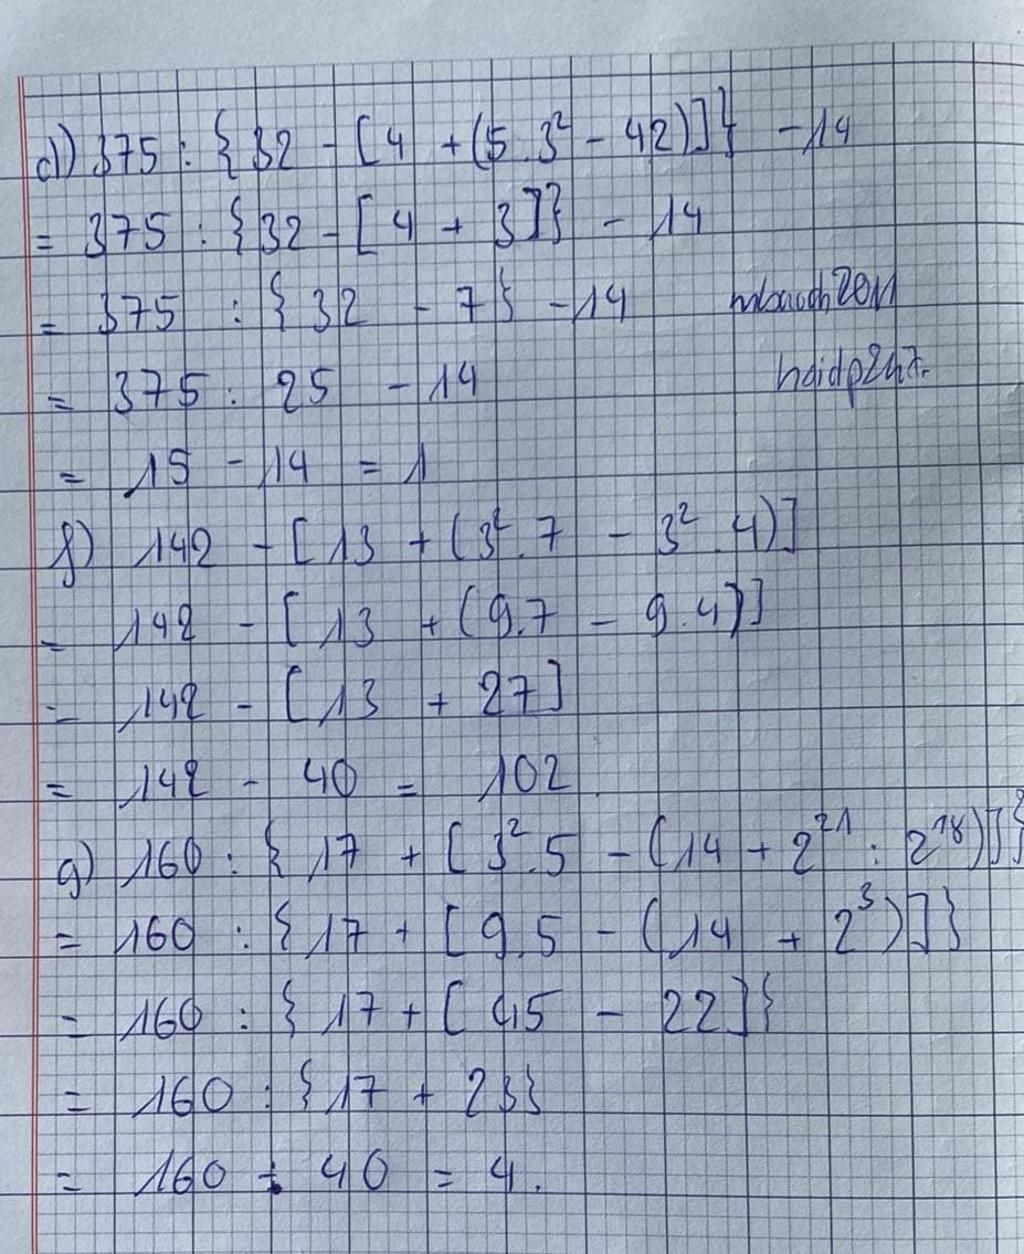 d) 375 : {32 - [4 + (5.3² - 42)]} - 14
= 375 : {32 - [4 + 3]} - 14
= 375 : {32 - 7} - 14
= 375 : 25 - 14
= 15 - 14 = 1
f) 142 - [13 + (3².7 - 3².4)]
= 142 - [13 + (9.7 - 9.4)]
= 142 - [13 + 27]
= 142 - 40 = 102
g) 160 : {17 + [3².5 - (14 + 2²¹ : 2¹⁸)]}
= 160 : {17 + [9.5 - (14 + 2³)]}
= 160 : {17 + [45 - 22]}
= 160 : {17 + 23}
= 160 : 40 = 4.